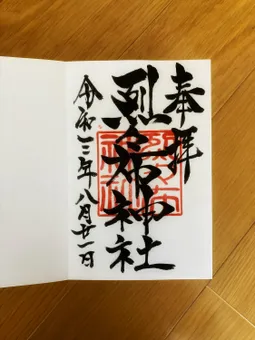 奉拝
烈々布神社
令和三年八月廿一日